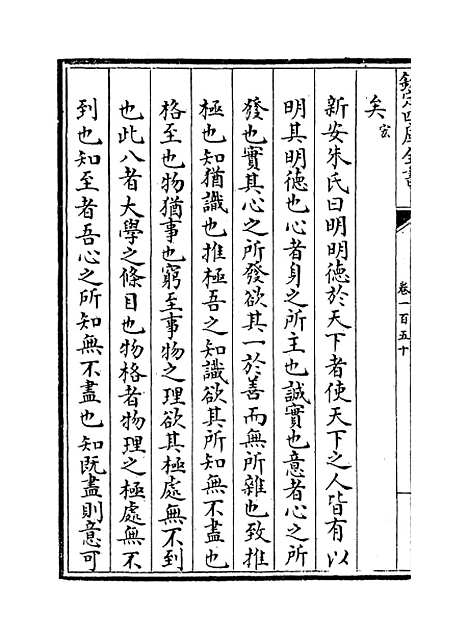 欽定四庫全書
卷一百五十
矣宏
新安朱氏曰明明德於天下者使天下之人皆有以
明其明德也心者身之所主也誠實也意者心之所
發也實其心之所發欲其一於善而無所雜也致推
極也知猶識也推極吾之知識欲其所知無不盡也
格至也物猶事也窮至事物之理欲其極處無不到
也此八者大學之條目也物格者物理之極處無不
到也知至者吾心之所知無不盡也知既盡則意可